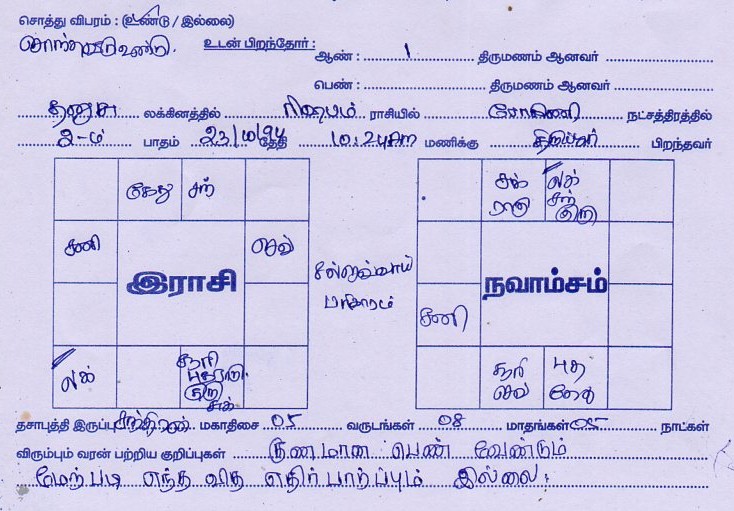 சொத்து விபரம் : (உண்டு / இல்லை)
சொந்தவீடு உண்டு. உடன் பிறந்தோர் : ஆண் : 1 திருமணம் ஆனவர்
பெண் : திருமணம் ஆனவர்
தனுசு லக்கினத்தில் ரிஷபம் ராசியில் ரோகிணி நட்சத்திரத்தில்
2-ம் பாதம் 23/10/94 தேதி 10.24 மணிக்கு பிறந்தவர்
கேது சந்
சனி செவ்
இராசி
லக் சூரி புத குரு சுக்
செவ்வாய்
சுக் ராகு லக் சந் குரு
நவாம்சம்
சனி
சூரி செவ் புத கேது
தசாபுத்தி இருப்பு சந்திரன் மகாதிசை 05 வருடங்கள் 08 மாதங்கள் 05 நாட்கள்
விரும்பும் வரன் பற்றிய குறிப்புகள் குணமான பெண் வேண்டும்
மேற்படி எந்த வித எதிர்பார்ப்பும் இல்லை.